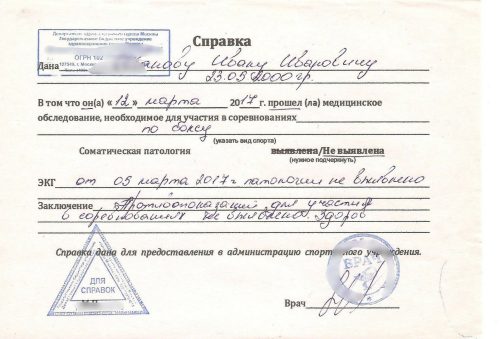 Департамент здравоохранения города Москвы
Государственное бюджетное учреждение
здравоохранения
ОГРН 102
107549, г. Москва
Справка
Дана Иванову Ивану Ивановичу
23.05.2000 гр.
В том что он(а) « 12 » марта 2017 г. прошел (ла) медицинское
обследование, необходимое для участия в соревнованиях
по боксу
(указать вид спорта)
Соматическая патология выявлена/Не выявлена
(нужное подчеркнуть)
ЭКГ от 05 марта 2017 г патологии не выявлено
Заключение Противопоказаний для участия
в соревнованиях не выявлено. Здоров
Справка дана для предоставления в администрацию спорт ного учреждения.
ДЛЯ
СПРАВОК
ВРАЧ
Врач